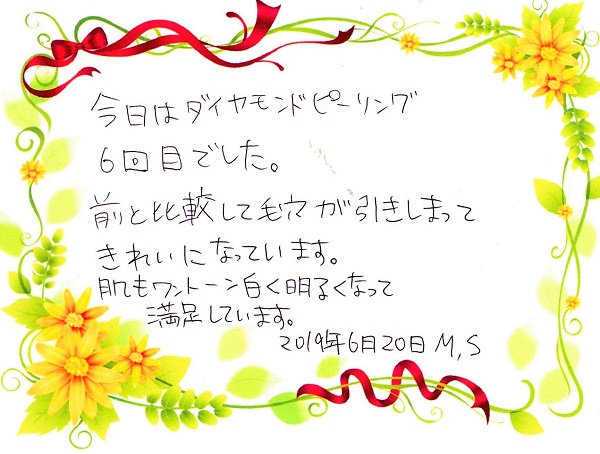 今日はダイヤモンドピーリング
6回目でした。
前と比較して毛穴が引きしまって
きれいになっています。
肌もワントーン白く明るくなって
満足しています。
2019年6月20日 M,S